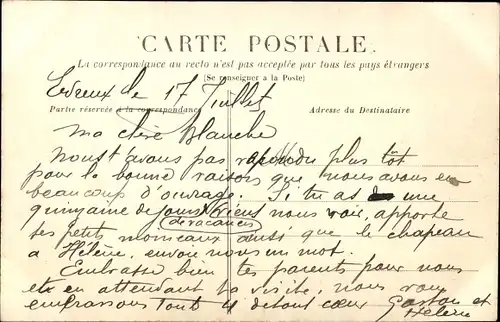 CARTE POSTALE
La correspondance au recto n'est pas acceptée par tous les pays étrangers
(Se renseigner à la Poste)
Evreux le 17 Juillet
Partie réservée à la correspondance
Adresse du Destinataire
Ma chère Blanche
Nous t'avons pas répondu plus tôt
pour la bonne raison que nous avons eu
beaucoup d'ouvrage. Si tu as une
quinzaine de jours viens nous voir, apporte
de vacances
tes petits morceaux ainsi que le chapeau
à Hélène, envoie nous un mot.
Embrasse bien tes parents pour nous
et en attendant ta visite, nous vous
embrassons tout 4 de tout cœur Gaston et
Hélène